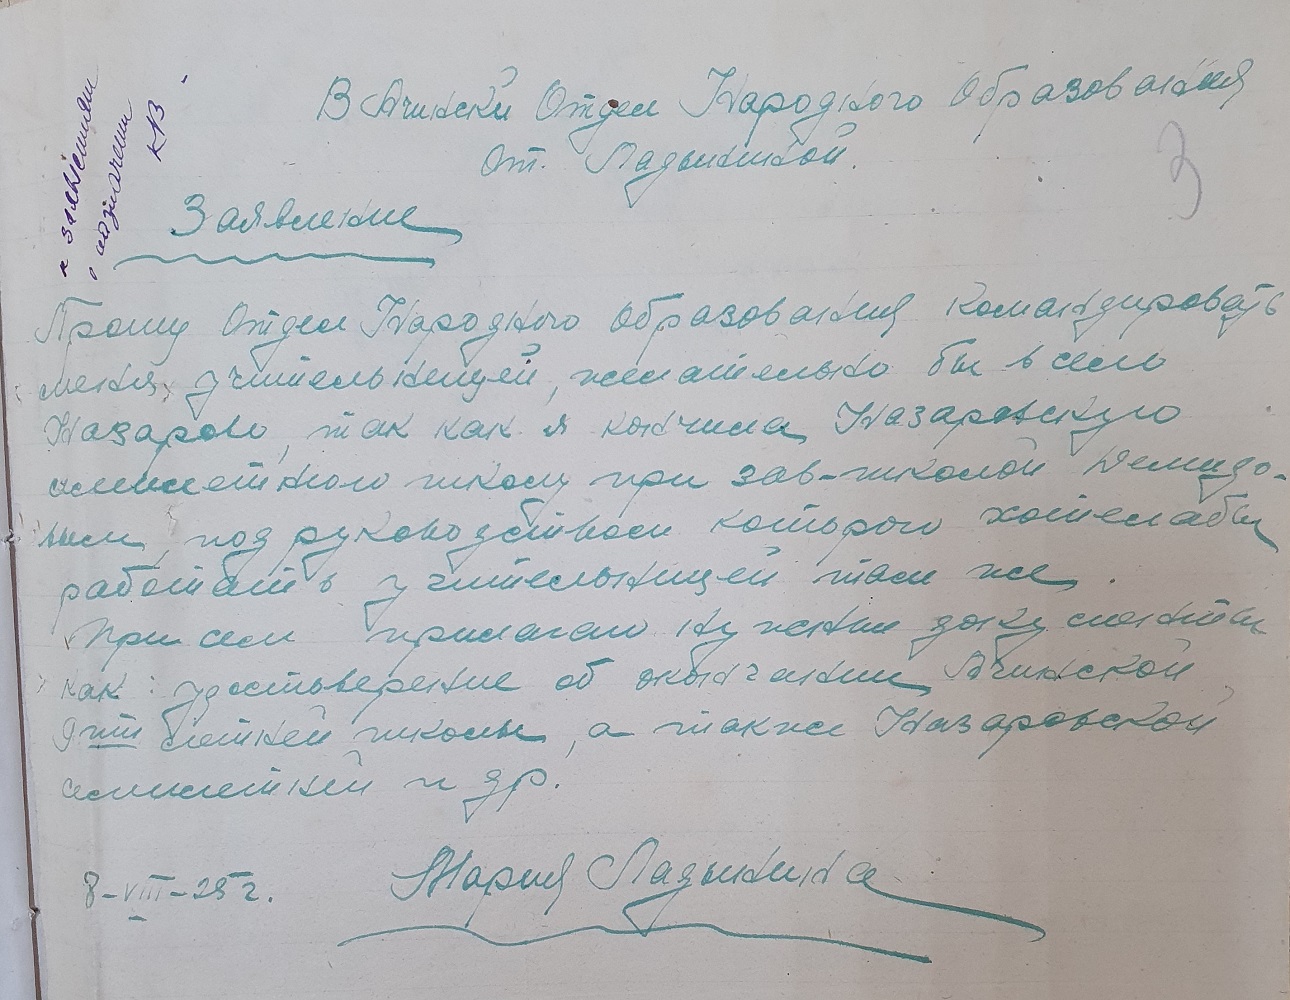 к заявлениям
о назначении
КВ
В Ачински Отдел Народного Образования
От. Ладыниной.
3
Заявление
Прошу Отдел Народного Образования командировать
меня, учительницей, желательно бы в село
Назарово, так как я кончила Назаровскую
семилетнюю школу при зав-школой Демидо-
вым, под руководством которого хотела бы
работать учительницей там же.
При сем прилагаю нужные документы
как: удостоверение об окончании Ачинской
9ти летней школы, а также Назаровской
семилетней и др.
8-VIII-25 г.
Мария Ладынина